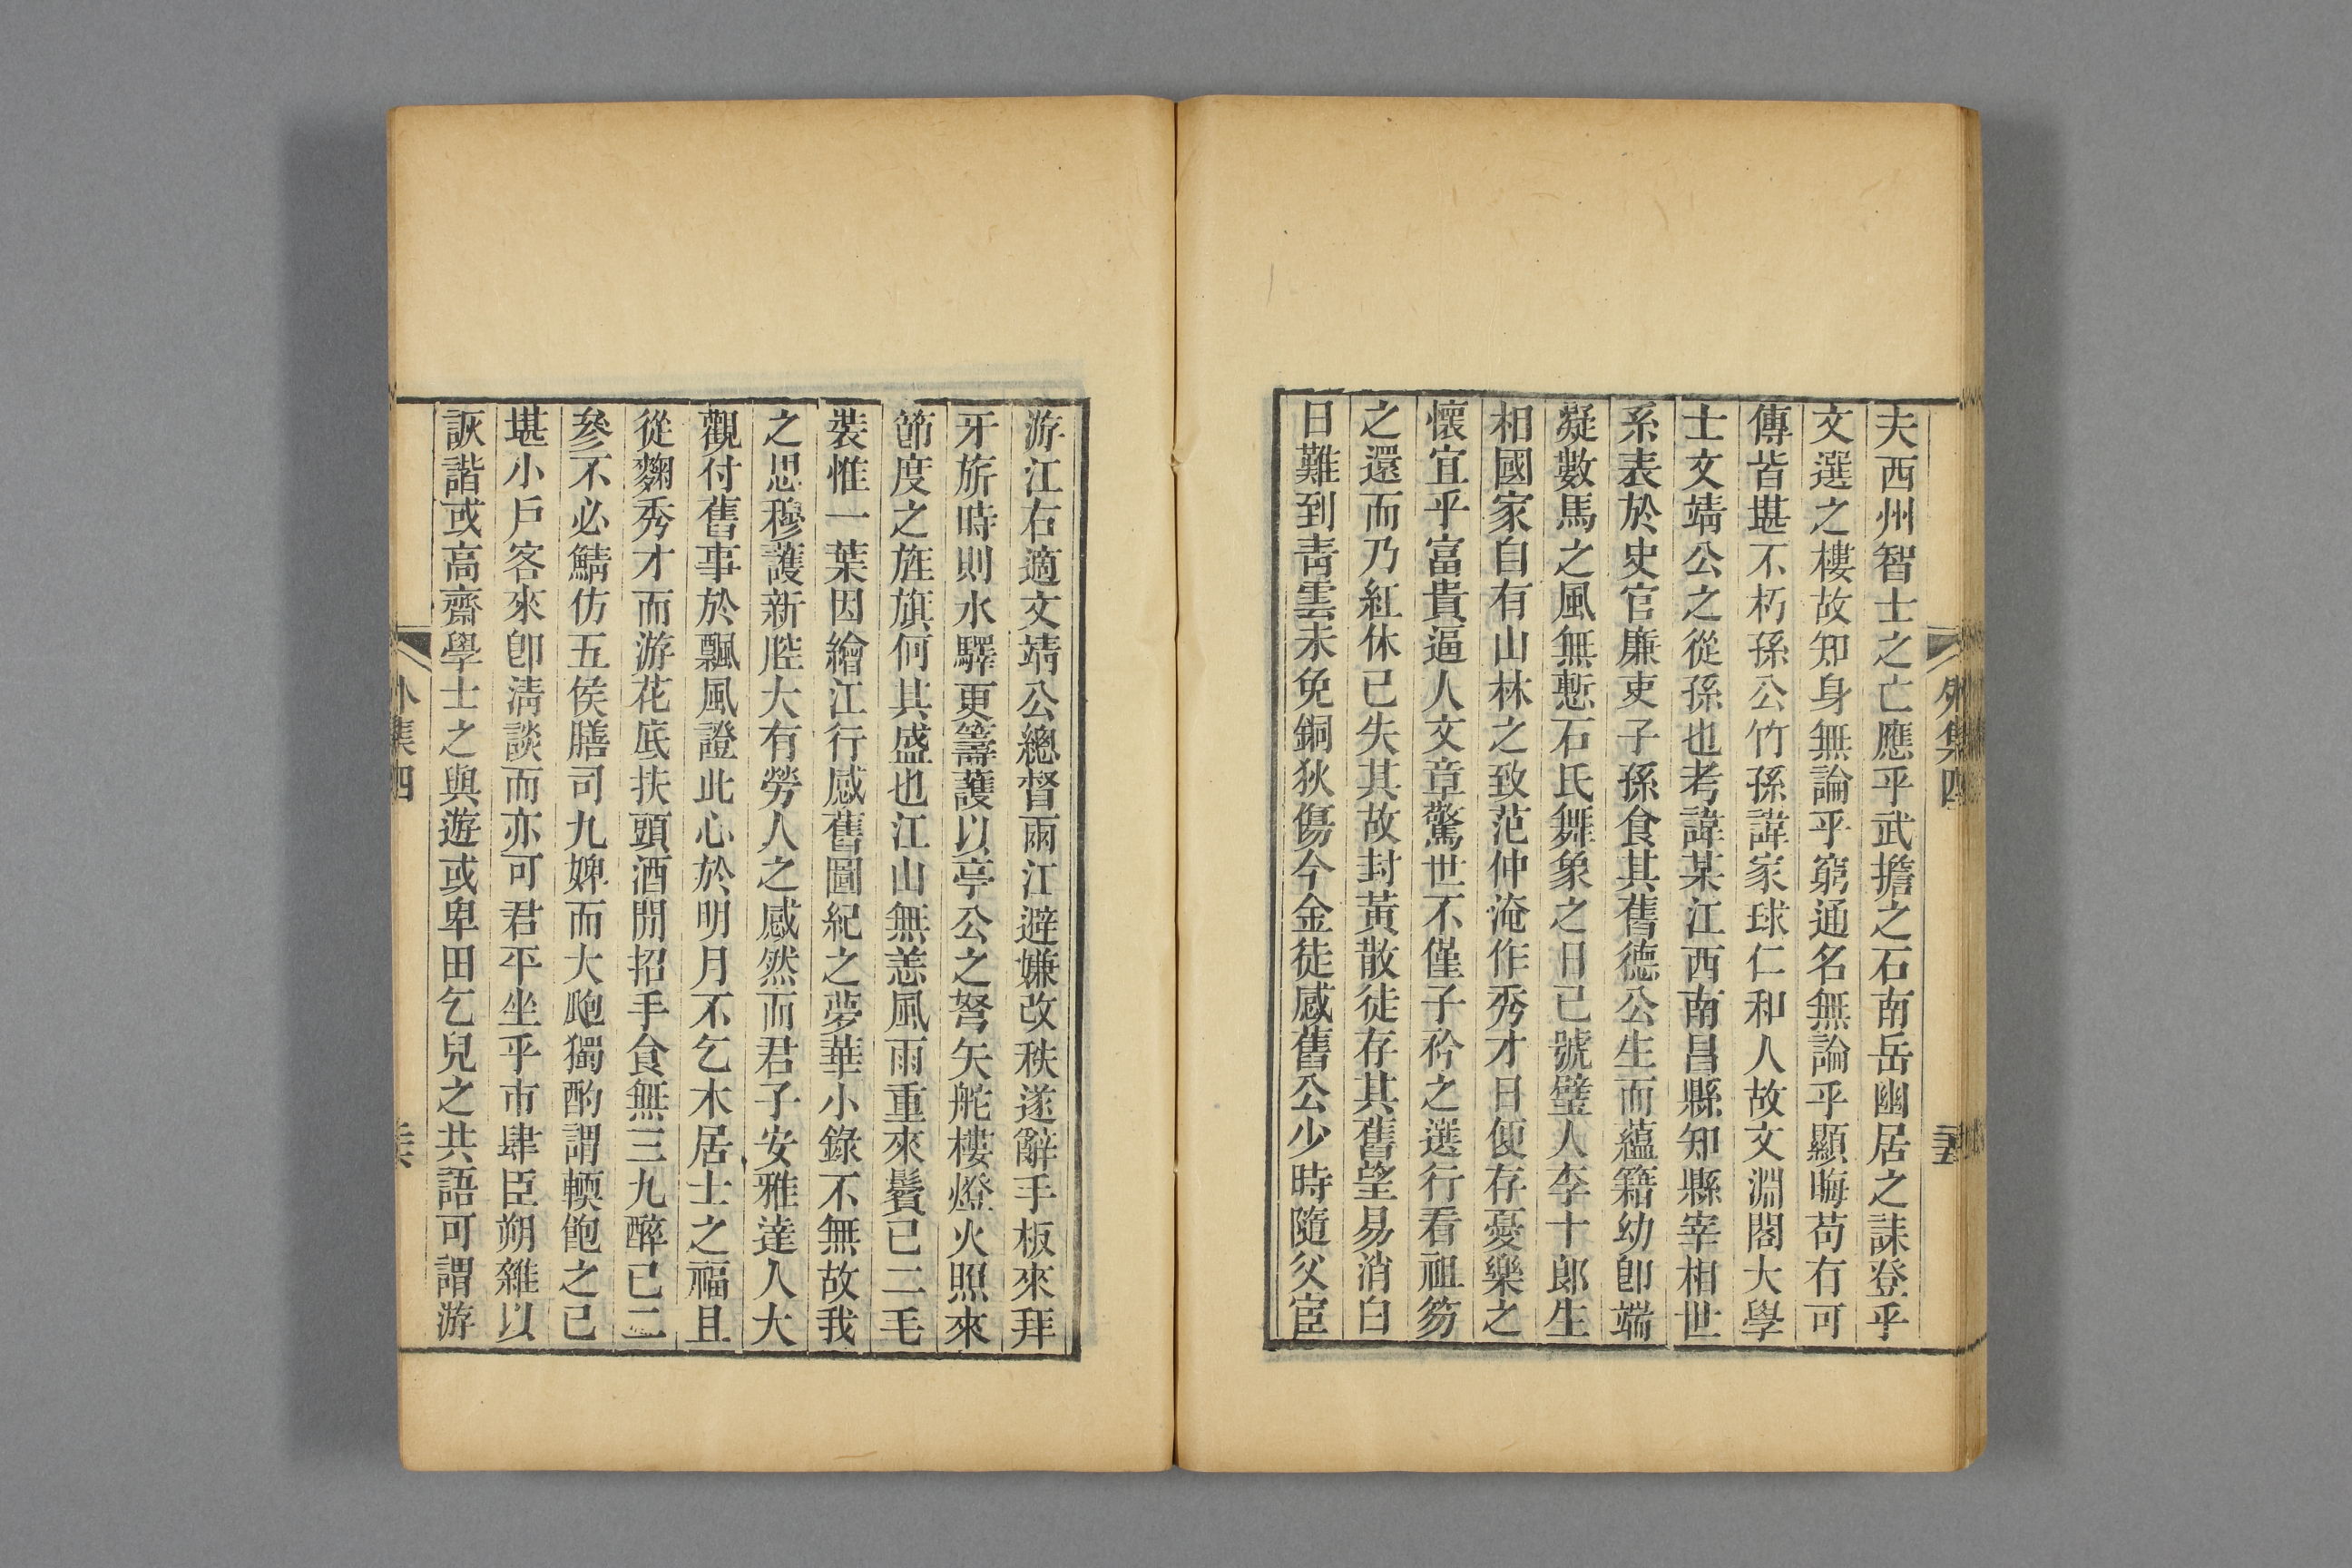 外集四
三五
夫西州智士之亡應乎武擔之石南岳幽居之誄登乎
文選之樓故知身無論乎窮通名無論乎顯晦苟有可
傳皆堪不朽孫公竹孫諱家球仁和人故文淵閣大學
士文靖公之從孫也考諱某江西南昌縣知縣宰相世
系表於史官廉吏子孫食其舊德公生而蘊籍幼卽端
凝數馬之風無慙石氏舞象之日已號璧人李十郞生
相國家自有山林之致范仲淹作秀才日便存憂樂之
懷宜乎富貴逼人文章驚世不僅子衿之選行看祖笏
之還而乃紅休已失其故封黃散徒存其舊望易消白
日難到靑雲未免銅狄傷今金徒感舊公少時隨父宦
游江右適文靖公總督兩江避嫌改秩遂辭手板來拜
牙旂時則水驛更籌護以亭公之弩矢舵樓燈火照來
節度之旌旗何其盛也江山無恙風雨重來鬢已二毛
裝惟一葉因繪江行感舊圖紀之夢華小錄不無故我
之思穆護新腔大有勞人之感然而君子安雅達人大
觀付舊事於飄風證此心於明月不乞木居士之福且
從麴秀才而游花底扶頭酒閒招手食無三九醉已二
參不必鯖仿五侯膳司九婢而大瓟獨酌謂輭飽之已
堪小戶客來卽淸談而亦可君平坐乎市肆臣朔雜以
詼諧或高齋學士之與遊或卑田乞兒之共語可謂游
外集四
三六